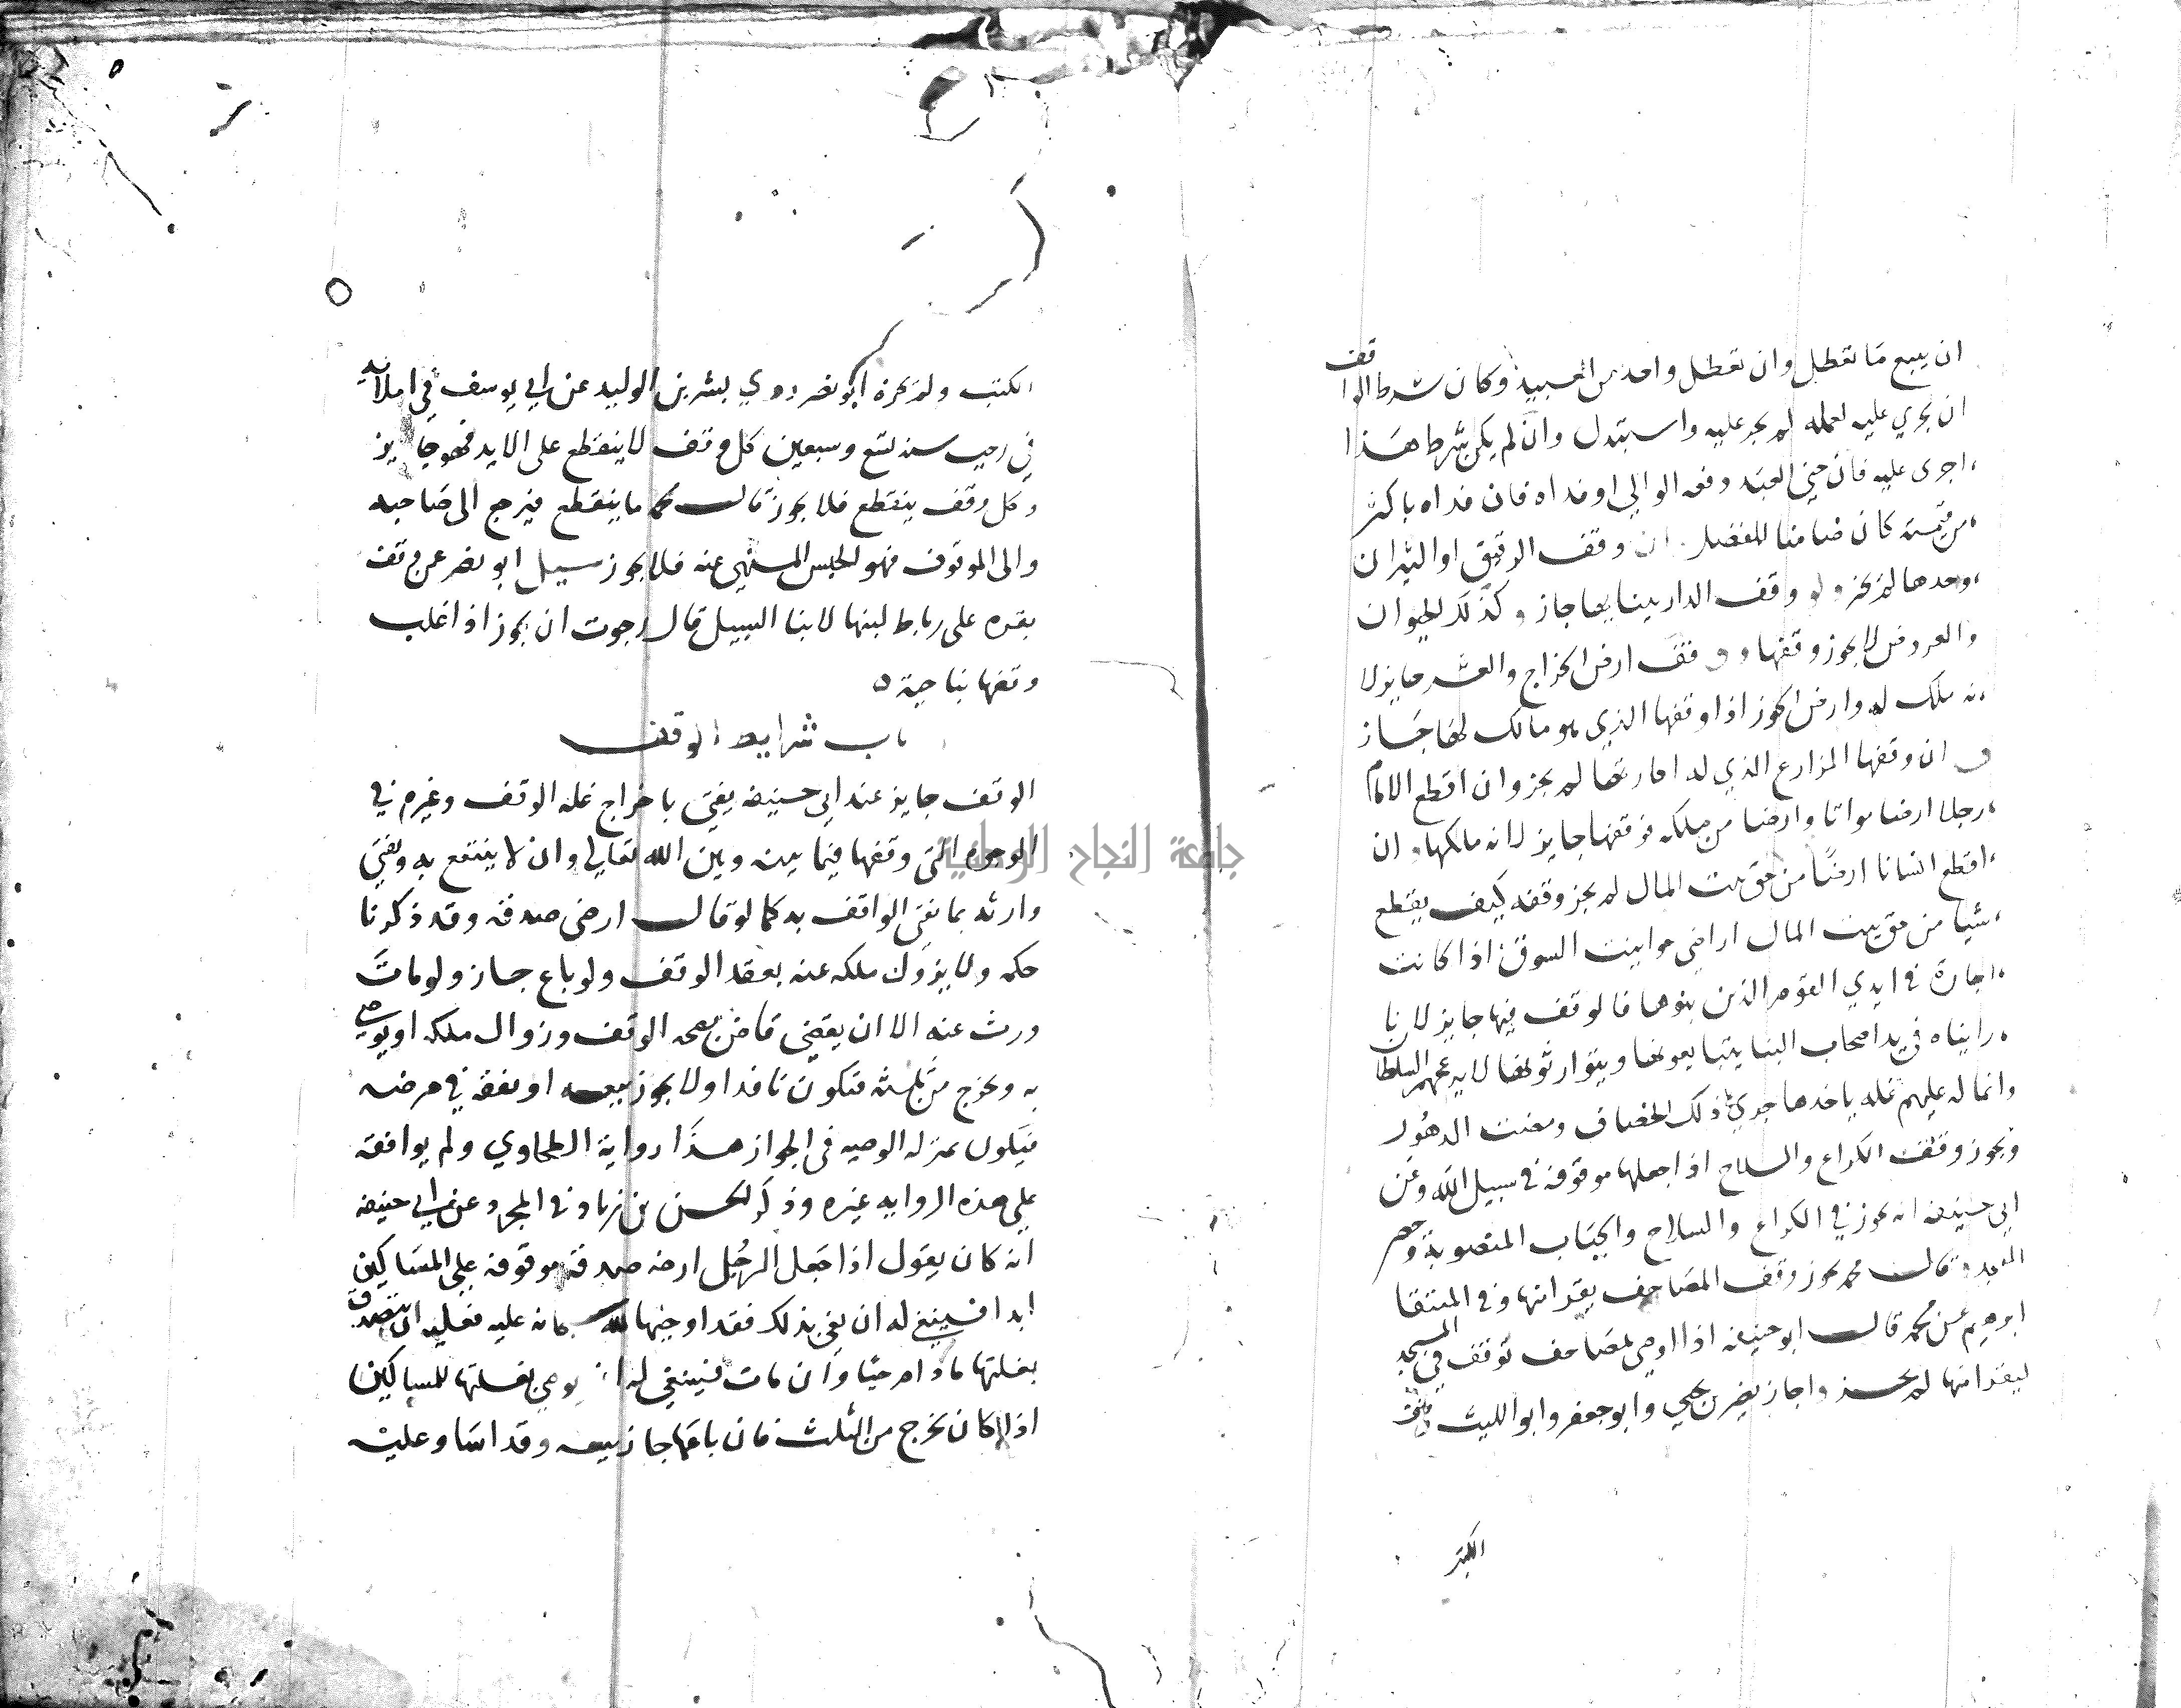 ان يبيع ما تعطل وان تعطل واحد من العبيد وكان شرط الواقف
ان يجري عليه لعمله لم يجر عليه واستبدل وان لم يكن شرط هذا
اجرى عليه فان جنى العبد دفعه الوالي او فداه فان فداه باكثر
من قيمته كان ضامنا للفضل ان وقف الرقيق او الثيران
وحدها لم يجز ولو وقف الدار بينا بها جاز وكذلك الحيوان
والعروض لا يجوز وقفها ووقف ارض الخراج والعشر جايز لا
نه ملك له وارض الحوز اذا وقفها الذي هو مالك لها جاز
وان وقفها المزارع الذي له اكارتها لم يجز وان اقطع الامام
رجلا ارضا مواتا وارضا من ملكه فوقفها جايز لانه مالكها وان
اقطع انسانا ارضا من حق بيت المال لم يجز وقفه كيف يقطع
شيا من حق بيت المال اراضي حوانيت السوق اذا كانت
اجارة في ايدي القوم الذين بنوها فالوقف فيها جايز لانا
راينا ه في يد اصحاب البنا يتبايعونها ويتوارثونها لا يزعجهم السلطا
وانما له عليهم غله ياخذها جري ذلك الخصاف ومضت الدهور
ويجوز وقف الكراع والسلاح اذا جعلها موقوفة في سبيل الله وعن
ابي حنيفه انه يجوز في الكراع والسلاح والجباب المنصوبة وحصر
المسجد وقال محمد يجوز وقف المصاحف يقرا فيها وفي المنتقا
ابرهيم عن محمد قال ابو حنيفه اذا اوصى بمصاحف توقف في المسجد
ليقرا فيها لم يجز واجاز نصير بن يحيي وابو جعفر وابو الليث وقف
الكتب
الكتب ولم يجزه ابو نصر روي بشر بن الوليد عن ابي يوسف في املائه
في رجب سنة تسع وسبعين كل وقف لا ينقطع على الابد فهو جايز
وكل وقف ينقطع فلا يجوز قال محمد ما ينقطع فيرجع الى صاحبه
والى الموقوف فهو الحبس المنهي عنه فلا يجوز سيل ابو نصر عمن وقف
بقره على رباط لبنها لابنا السبيل قال رجوت ان يجوز اذا غلب
وقفها بناحية ه
باب شرايط الوقف
الوقف جايز عند ابي حنيفه يفتى باخراج غله الوقف وغيره في
الوجوه التي وقفها فيما بينه وبين الله تعالي وان لا ينتفع به ويفتى
وارثه بما يفتى الواقف به كما لو قال ارضي صدقه وقد ذكرنا
حكمه ولا يزول ملكه عنه بعقد الوقف ولو باع جاز ولو مات
ورث عنه الا ان يقضي قاض بصحه الوقف وزوال ملكه او يوصي
به ويخرج من ثلثه فتكون نافذا ولا يجوز بيعه او يقفه في مرضه
فيكون بمنزلة الوصيه في الجواز هذا رواية الطحاوي ولم يوافقه
على هذه الروايه غيره وذكر الحسن بن زياد في المجرد عن ابي حنيفه
انه كان يقول اذا جعل الرجل ارضه صدقة موقوفه على المساكين
ابدا فينبغي له ان يفي بذلك فقد اوجبها لله كانه عليه فعليه ان يتصدق
بغلتها ما دام حيا وان مات فينبغي له ان يوصي بغلتها للمساكين
اذا كان تخرج من الثلث فان باعها جاز بيعه وقد اسا وعليه
جامعة النجاح الوطنية